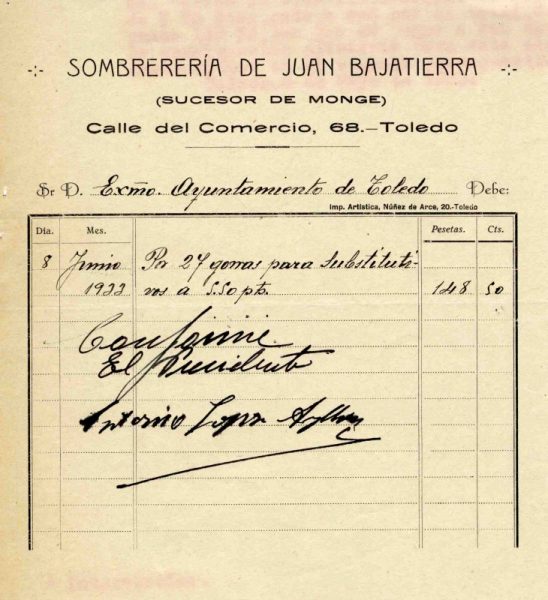 SOMBRERERÍA DE JUAN BAJATIERRA
(SUCESOR DE MONGE)
Calle del Comercio, 68.-Toledo
Sr D. Exmo. Ayuntamiento de Toledo Debe:
Imp. Artística, Núñez de Arce, 20.-Toledo
Día. Mes. Pesetas. Cts.
8 Junio Por 27 gorras para substituti-
1922 vos a 5.50 pts. 148 50
Conforme
El Presidente
Antonio